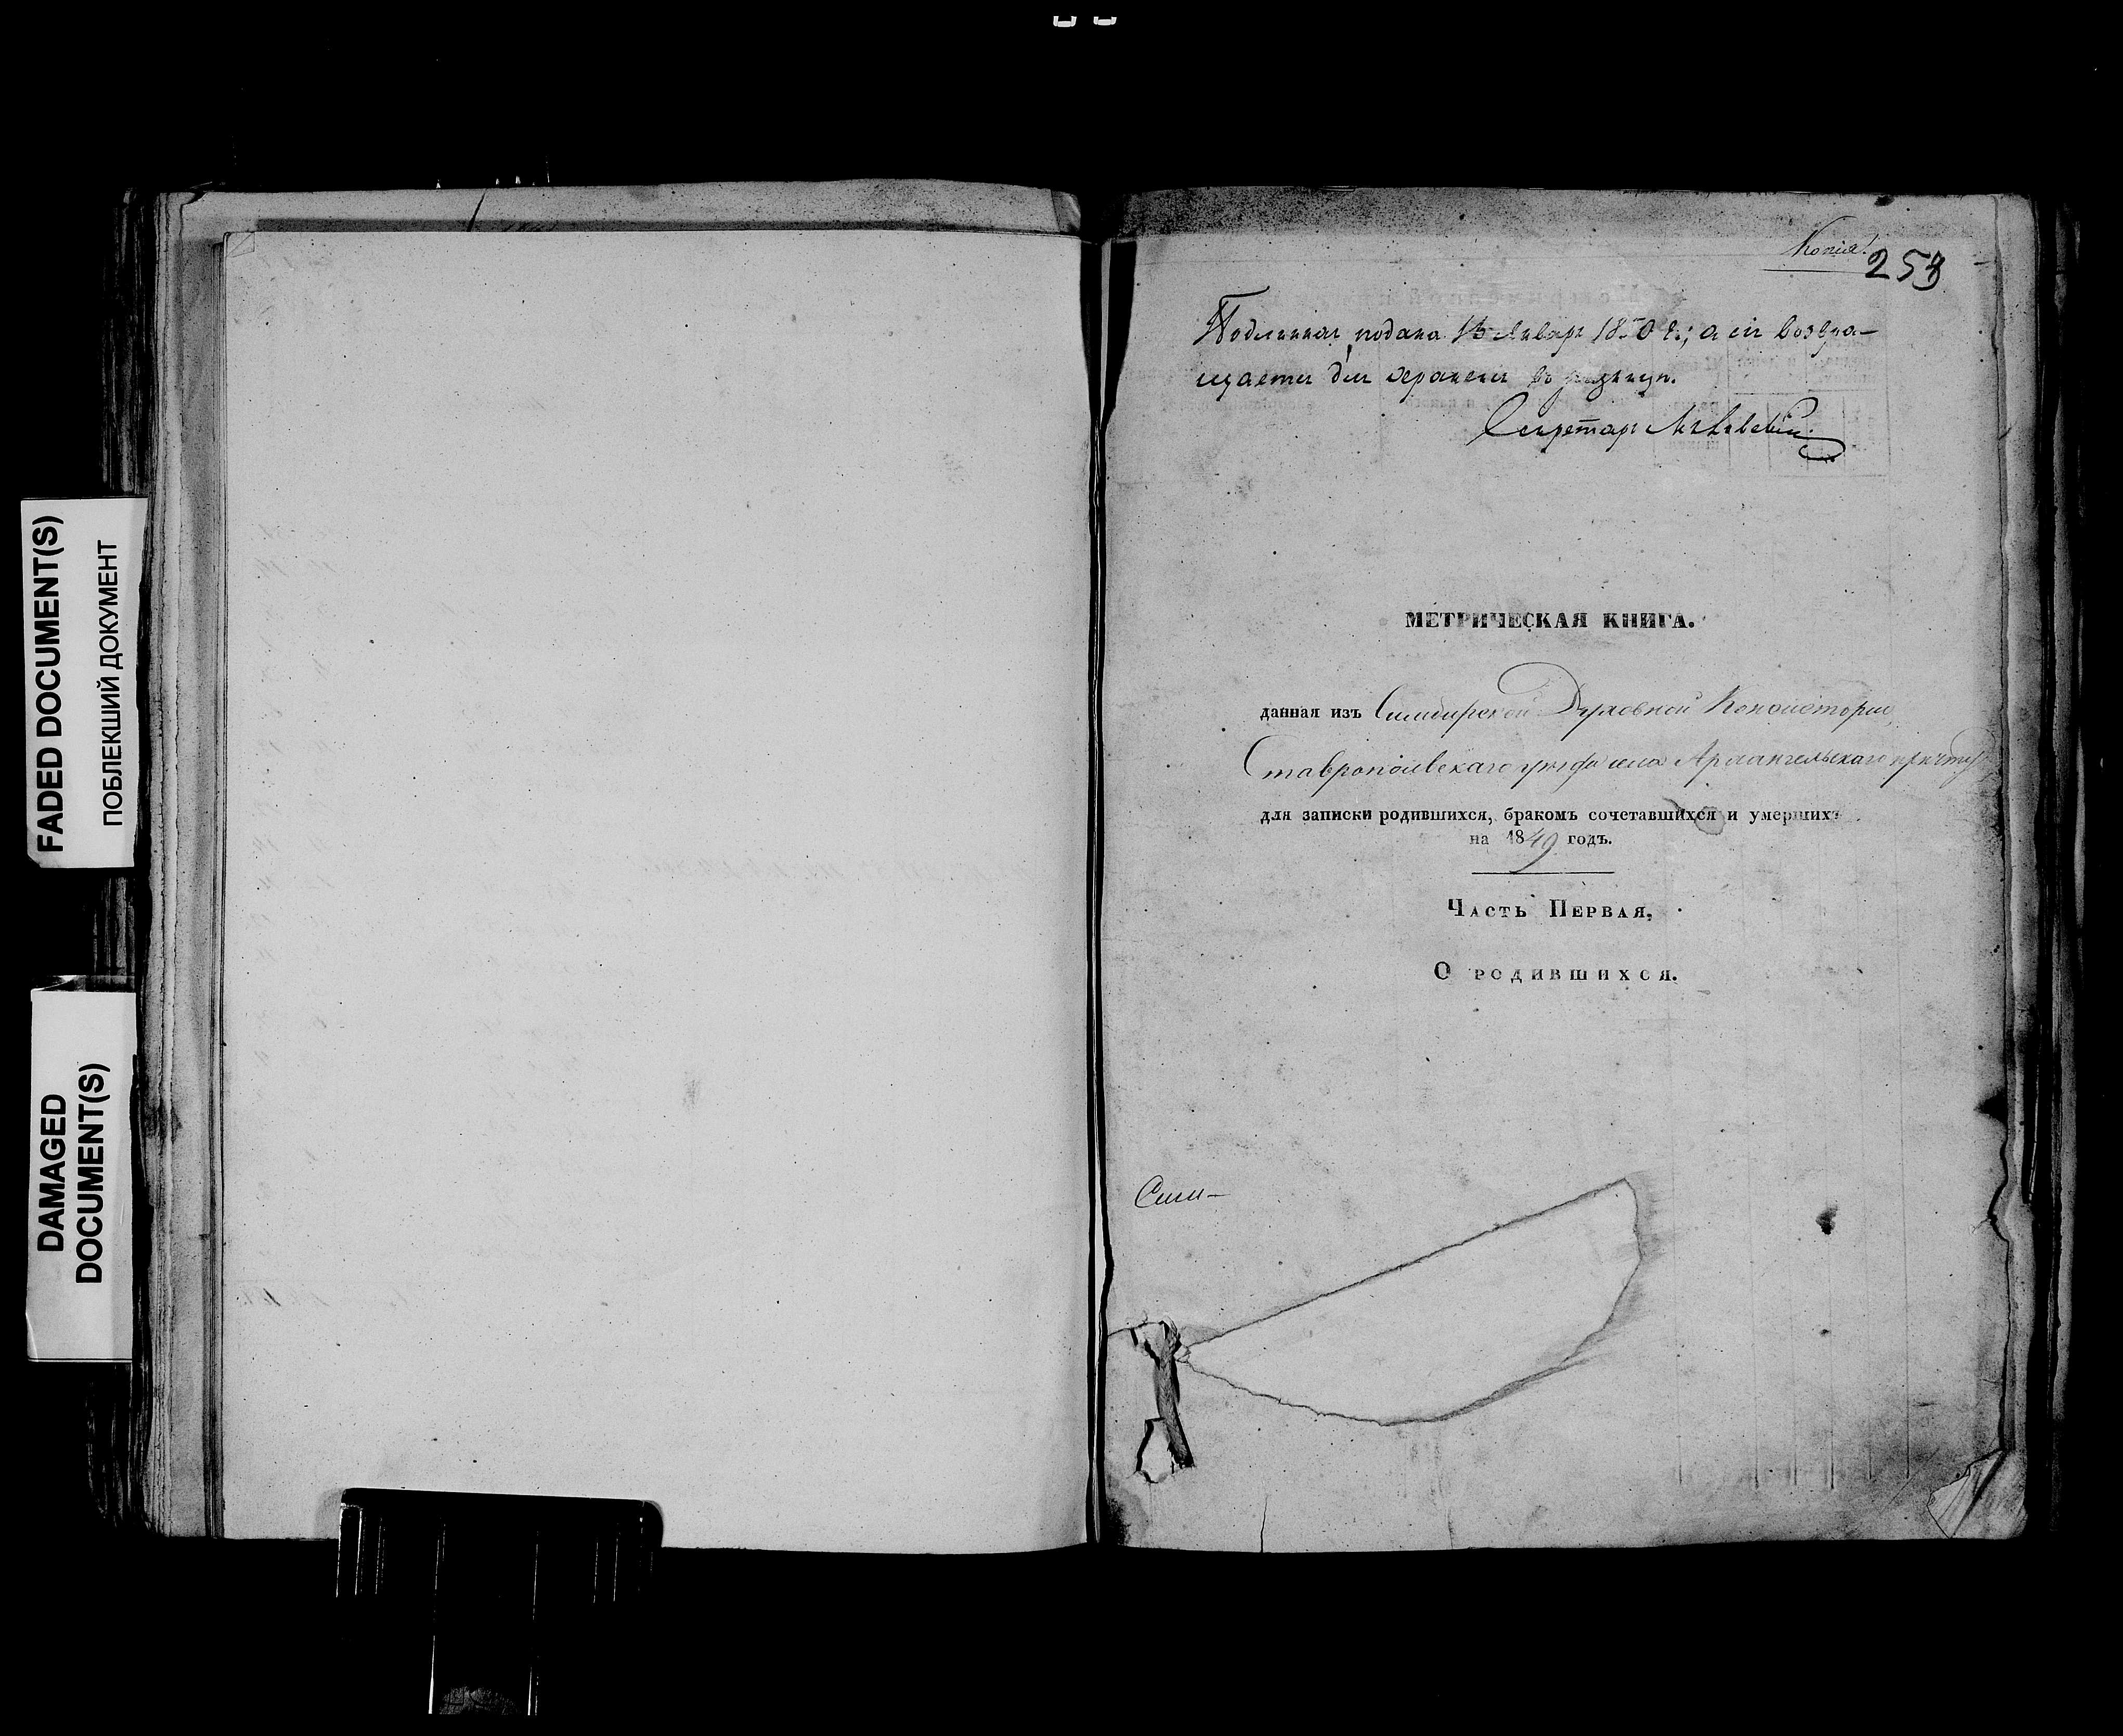 FADED DOCUMENT(S)
ПОБЛЕКШИЙ ДОКУМЕНТ
DAMAGED
DOCUMENT(S)
Копія
253
Подлинная подана 15 Январ 1850 г.; а сія возвра-
щается для храненія въ ризницу.
Секретарь
МЕТРИЧЕСКАЯ КНИГА.
данная изъ Симбирской Духовной Консисторіи,
Ставропольскаго уѣзда села Архангельскаго причту
для записки родившихся, бракомъ сочетавшихся и умершихъ
на 1849 годъ.
Часть Первая,
О родившихся.
Сим-